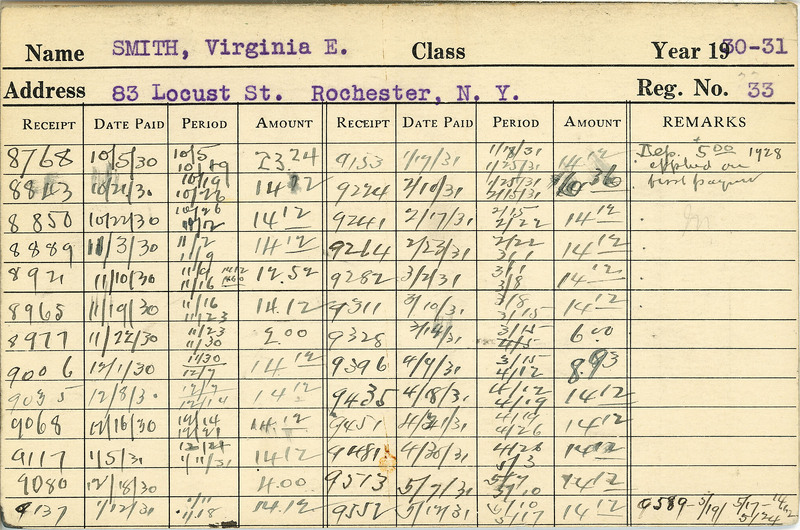 Name SMITH, Virginia E. Class Year 1930-31
Address 83 Locust St. Rochester, N. Y. Reg. No. 33
RECEIPT DATE PAID PERIOD AMOUNT RECEIPT DATE PAID PERIOD AMOUNT REMARKS
8768 10/5/30 10/5 10/19 23.24 9153 1/17/31 1/18/31 1/25/31 14 12 Dep. 5 00 1928
applied on
8843 10/21/30 10/19 10/26 14 12 9224 2/10/31 1/25/31 2/15/31 first payment
8850 10/22/30 10/26 11/2 14 12 9241 2/17/31 2/15 2/22 14 12
8889 11/3/30 11/2 11/9 14 12 9264 2/23/31 2/22 3/1 14 12
8921 11/10/30 11/9 11/16 12.52 9282 3/2/31 3/1 3/8 14 12
8965 11/19/30 11/16 11/23 14.12 9311 3/10/31 3/8 3/15 14 12
8977 11/22/30 11/23 11/30 2.00 9328 3/14/31 3/15 4/5 6.00
9006 12/1/30 11/30 12/7 14 12 9396 4/9/31 3/15 4/12 8.93
9035 12/8/30 12/7 12/14 14 12 9435 4/18/31 4/12 4/19 14 12
9068 12/16/30 12/14 12/21 14.12 9451 4/21/31 4/19 4/26 14 12
9117 1/5/31 12/21 1/11/31 14 12 9481 4/30/31 4/26 5/3 14 12
9080 12/18/30 4.00 9513 5/7/31 5/3 5/10 14 12
9137 1/12/31 1/11 1/18 14.12 9552 5/17/31 5/10 5/17 14 12 9589-5/19/31 5/17-14.12 5/24